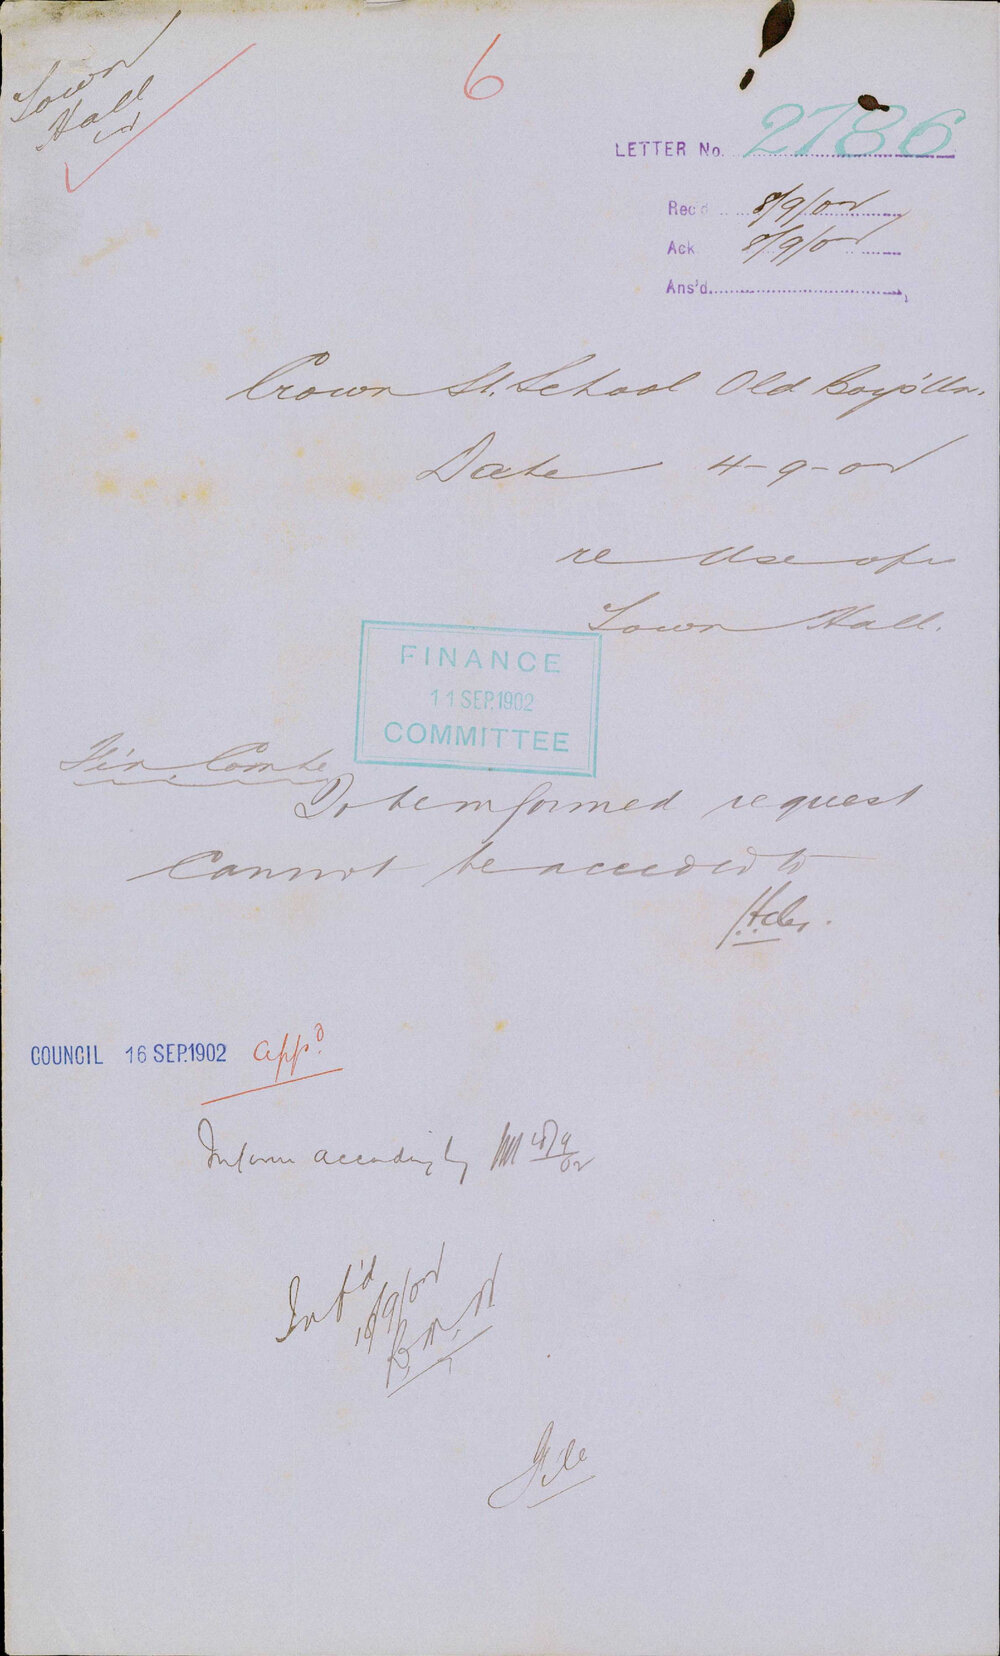 Town
Hall
6
LETTER No. 2786
Rec'd 8/9/02
Ack 8/9/02
Ans'd
Crown St. School Old Boys' Un.
Date 4-9-02
re Use of
Town Hall.
FINANCE
11 SEP. 1902
COMMITTEE
Fin. Comte
To be informed request
cannot be acceded to
COUNCIL 16 SEP. 1902 appd.
Inform accordingly 18/9/02
Inf'd
18/9/02
File